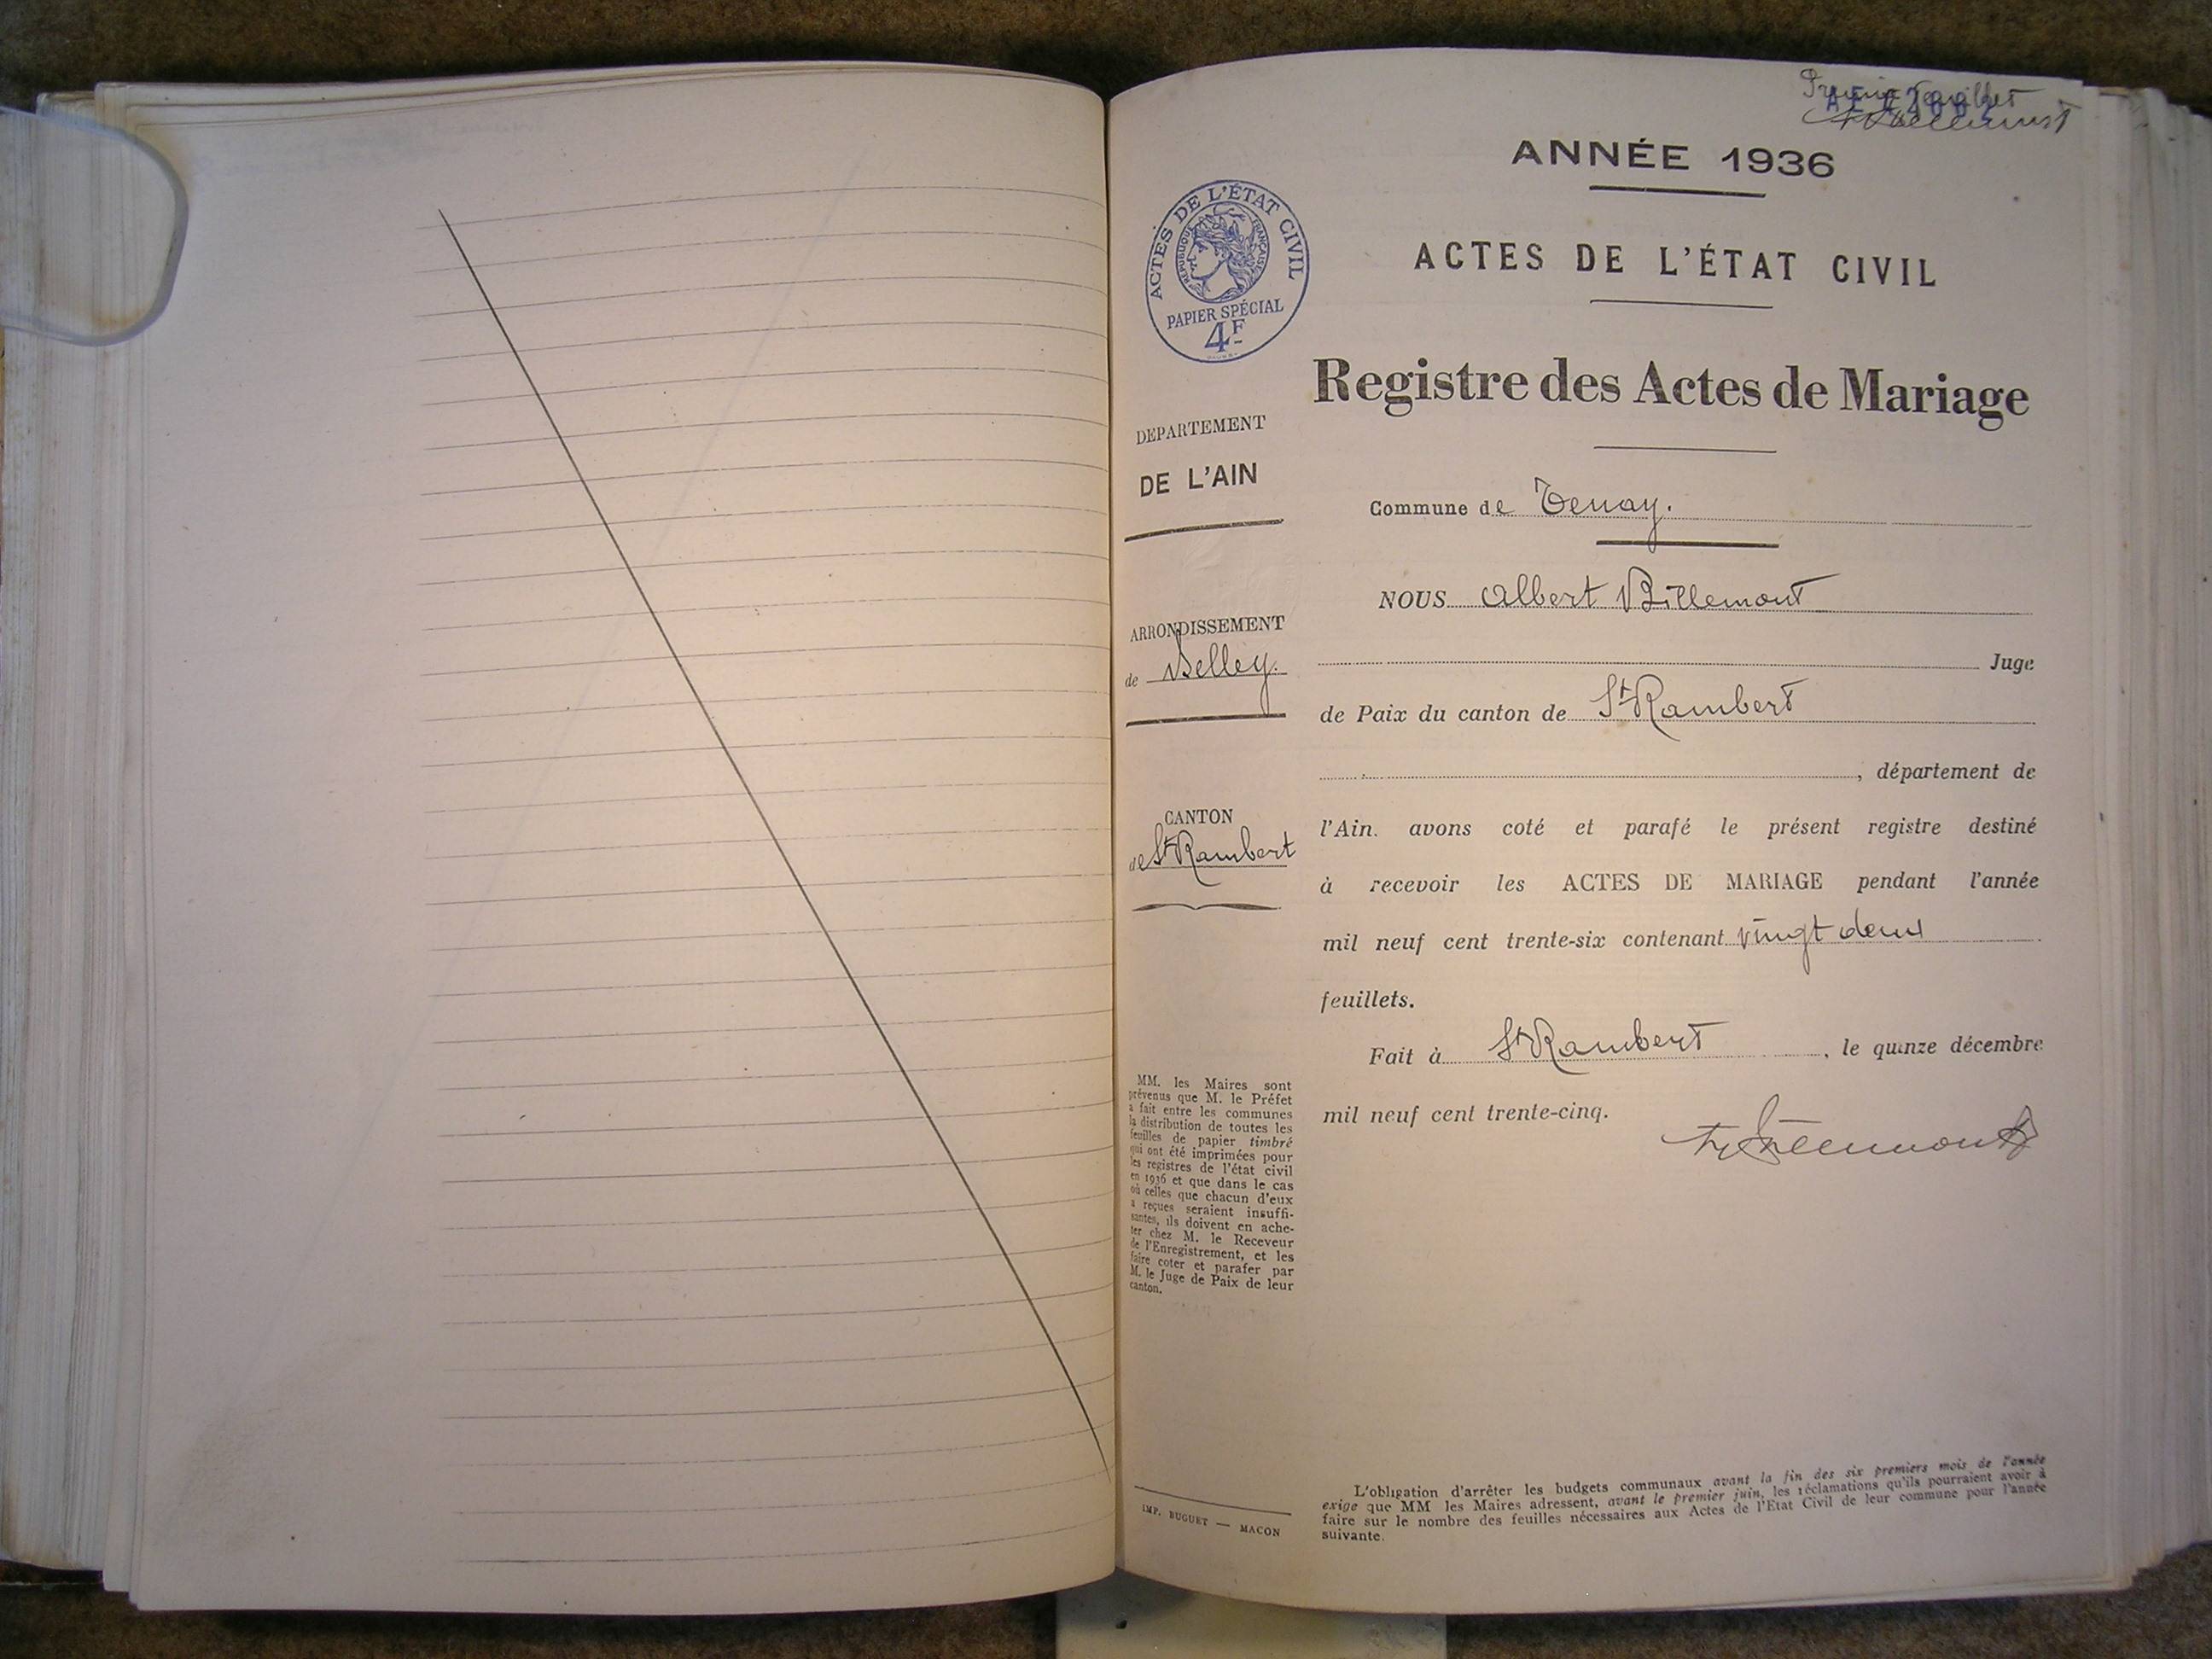 Premier feuillet
ANNÉE 1936
ACTES DE L'ÉTAT CIVIL
RÉPUBLIQUE FRANÇAISE
PAPIER SPÉCIAL
4F
ACTES DE L'ÉTAT CIVIL
Registre des Actes de Mariage
DEPARTEMENT
DE L'AIN
ARRONDISSEMENT
de Belley.
CANTON
de St Rambert
MM. les Maires sont
prévenus que M. le Préfet
a fait entre les communes
la distribution de toutes les
feuilles de papier timbré
qui ont été imprimées pour
les registres de l'état civil
en 1936 et que dans le cas
où celles que chacun d'eux
a reçues seraient insuffi-
santes, ils doivent en ache-
ter chez M. le Receveur
de l'Enregistrement, et les
faire coter et parafer par
M. le Juge de Paix de leur
canton.
IMP. BUGUET — MACON
Commune de Tenay.
NOUS Albert Billemont
Juge
de Paix du canton de St Rambert
, département de
l'Ain. avons coté et parafé le présent registre destiné
à recevoir les ACTES DE MARIAGE pendant l'année
mil neuf cent trente-six contenant vingt deux
feuillets.
Fait à St Rambert, le quinze décembre
mil neuf cent trente-cinq.
L'obligation d'arrêter les budgets communaux avant la fin des six premiers mois de l'année
exige que MM les Maires adressent, avant le premier juin, les réclamations qu'ils pourraient avoir à
faire sur le nombre des feuilles nécessaires aux Actes de l'Etat Civil de leur commune pour l'année
suivante.